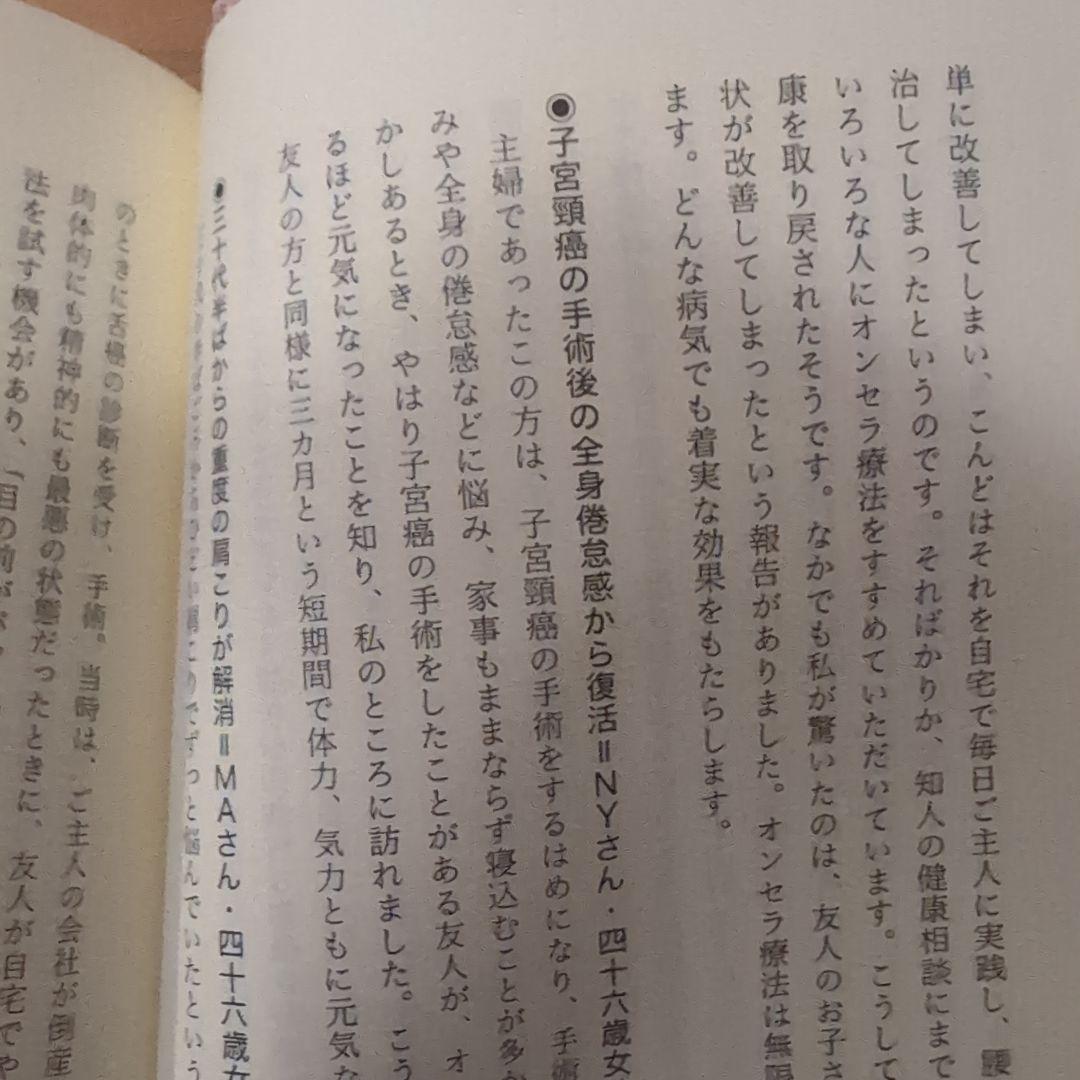 単に改善してしまい、こんどはそれを自宅で毎日ご主人に実践し、腰
治してしまったというのです。そればかりか、知人の健康相談にまで
いろいろな人にオンセラ療法をすすめていただいています。こうして
康を取り戻されたそうです。なかでも私が驚いたのは、友人のお子さ
状が改善してしまったという報告がありました。オンセラ療法は無限
ます。どんな病気でも着実な効果をもたらします。
◉子宮頸癌の手術後の全身倦怠感から復活=NYさん・四十六歳女
主婦であったこの方は、子宮頸癌の手術をするはめになり、手術
みや全身の倦怠感などに悩み、家事もままならず寝込むことが多か
かしあるとき、やはり子宮癌の手術をしたことがある友人が、オ
るほど元気になったことを知り、私のところに訪れました。こう
友人の方と同様に三カ月という短期間で体力、気力ともに元気な
◉三十代半ばからの重度の肩こりが解消=MAさん・四十六歳女
肩こりでずっと悩んでいたという
のときに舌癌の診断を受け、手術。当時は、ご主人の会社が倒産
肉体的にも精神的にも最悪の状態だったときに、友人が自宅でや
法を試す機会があり、「目の前が